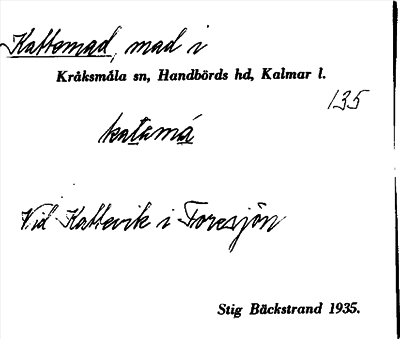 Kattemad, mad i
Kråksmåla sn, Handbörds hd, Kalmar l.
135
katamá
Vid Kattevik i Foresjön
Stig Bäckstrand 1935.